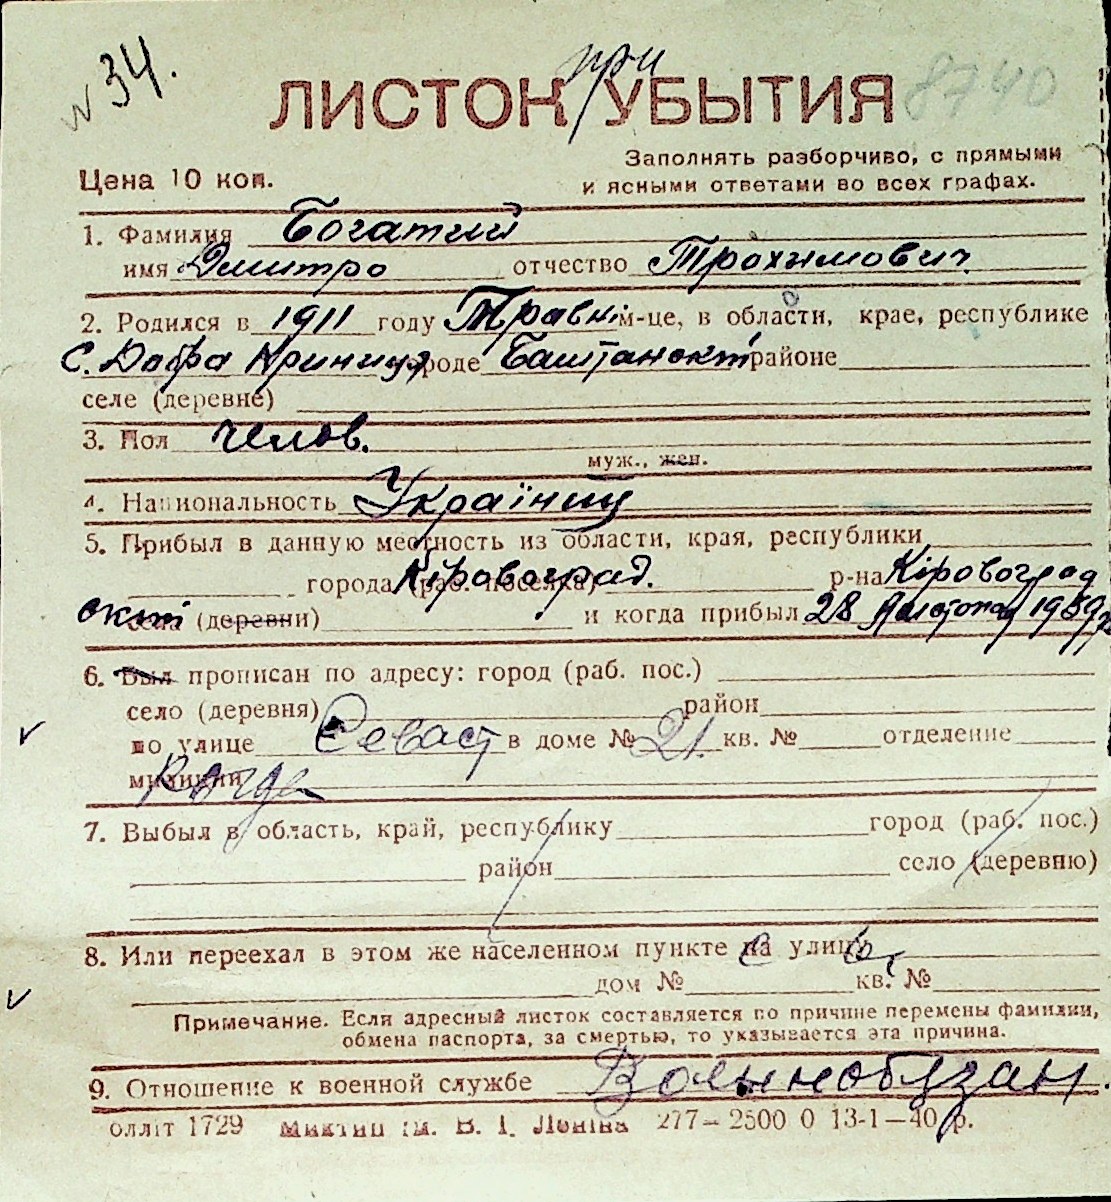 № 34.
при
8740
ЛИСТОК УБЫТИЯ
Заполнять разборчиво, с прямыми
Цена 10 коп.
и ясными ответами во всех графах.
1. Фамилия Богатий
имя Дмитро отчество Трохимович
2. Родился в 1911 году Травні м-це, в области, крае, республике
с. Добра Криниця городе Баштанскі районе
селе (деревне)
3. Пол челов.
муж., жен.
4. Национальность Україниц
5. Прибыл в данную местность из области, края, республики
города (раб. поселка) Кіровоград. р-на Кіровоград
скиі села (деревни) и когда прибыл 28 Листопад 1939
6. Был прописан по адресу: город (раб. пос.)
село (деревня) район
по улице Севаст в доме № 21. кв. № отделение
милиции
7. Выбыл в область, край, республику город (раб. пос.)
район село (деревню)
8. Или переехал в этом же населенном пункте на улицу
дом № кв. №
Примечание. Если адресный листок составляется по причине перемены фамилии,
обмена паспорта, за смертью, то указывается эта причина.
9. Отношение к военной службе Воыннобязан.
олліт 1729 ім. В. І. Леніна 277—2500 0 13-1—40 р.